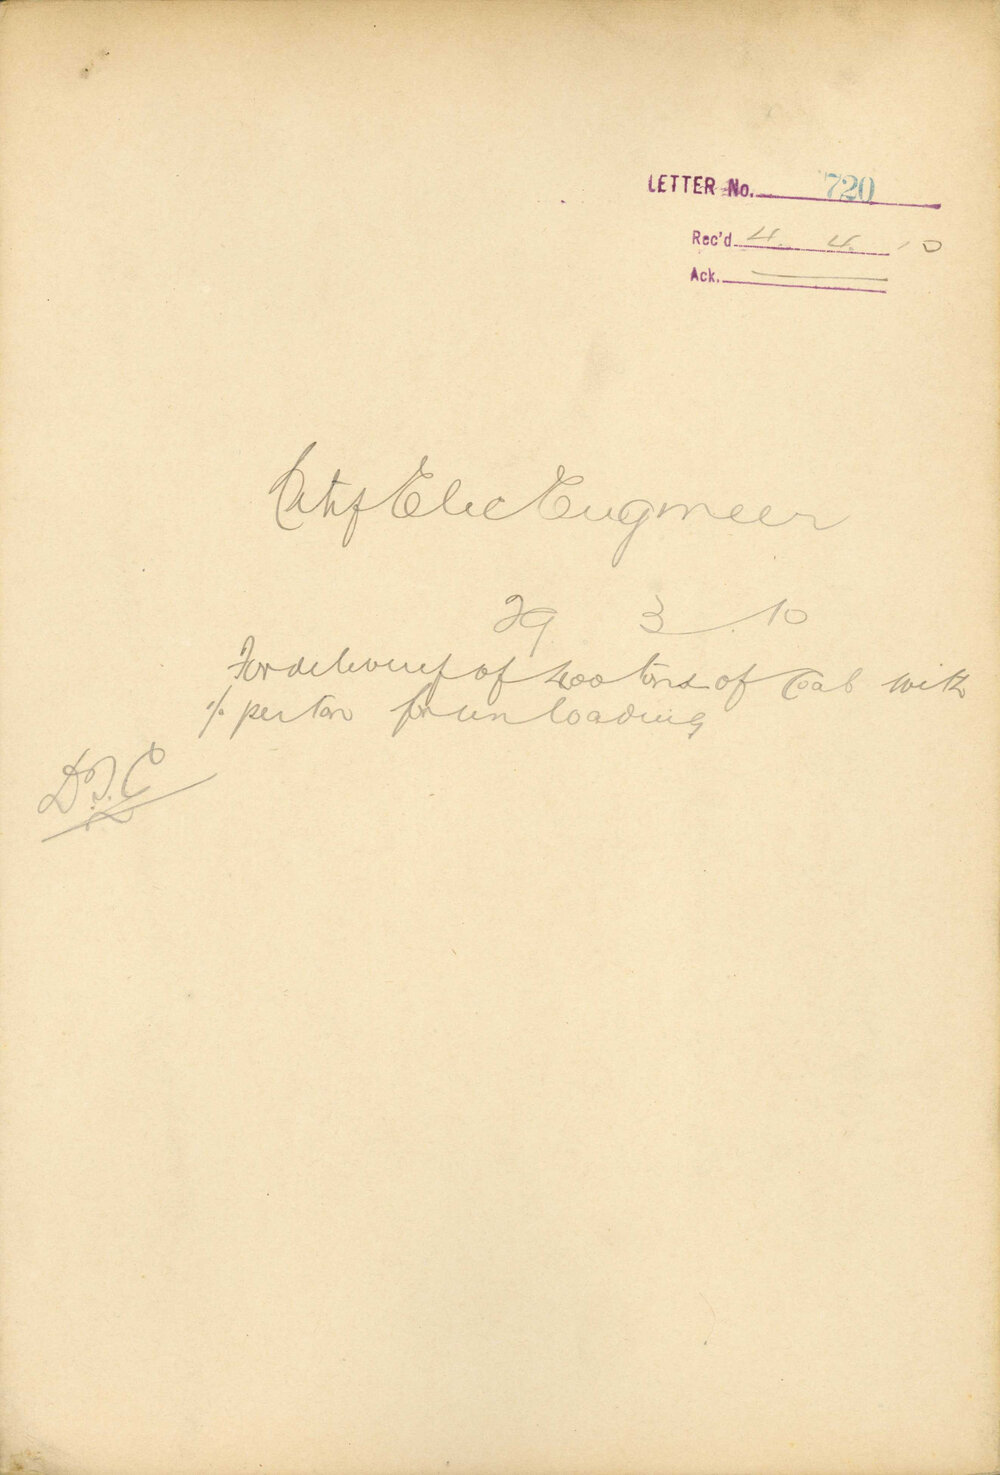 LETTER No. 720
Rec'd 4. 4. 10
Ack.
City Elec Engineer
29 3 10
For delivery of 400 tons of Coal with
1/- per ton for unloading
D.T.C